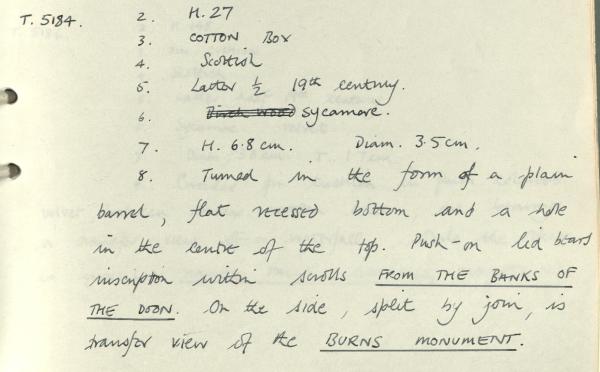 T. 5184. 2. H. 27
3. COTTON BOX
4. Scottish
5. Latter ½ 19th century.
6. Birch wood sycamore.
7. H. 6.8 cm. Diam. 3.5 cm.
8. Turned in the form of a plain
barrel, flat recessed bottom and a hole
in the centre of the top. Push-on lid bears
inscription within scrolls FROM THE BANKS OF
THE DOON. On the side, split by join, is
transfer view of the BURNS MONUMENT.